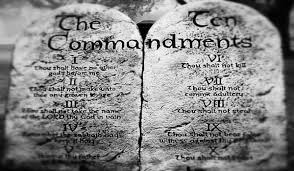 The Ten
Commandments
I
Thou shalt have no other
gods before me
II
Thou shalt not make unto
thee any graven image
III
Thou shalt not take the name
of the LORD thy God in vain
IV
Remember the sabbath day
thy father
VI
Thou shalt not kill
VII
Thou shalt not commit
adultery
VIII
Thou shalt not steal
Thou shalt not bear
witness against thy
Thou shalt not